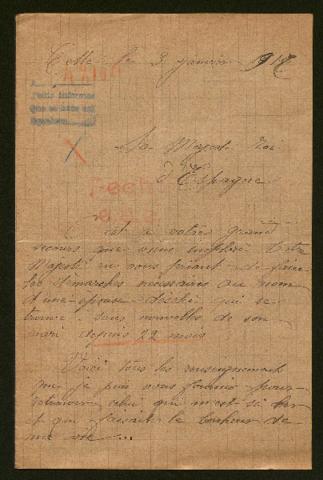 Cette le 3 janvier 1917
Sa Majesté Roi
d'Espagne
C'est a votre grand
recours que vous implore Votre
Majesté en vous priant de faire
les démarches nécessaires au nom
d'une épouse désolée qui se
trouve sans nouvelles de son
mari depuis 22 mois
Voici tous les renseignements
que je puis vous fournir pour
retrouver celui qui m'est si cher
et qui faisait le bonheur de
ma vie...